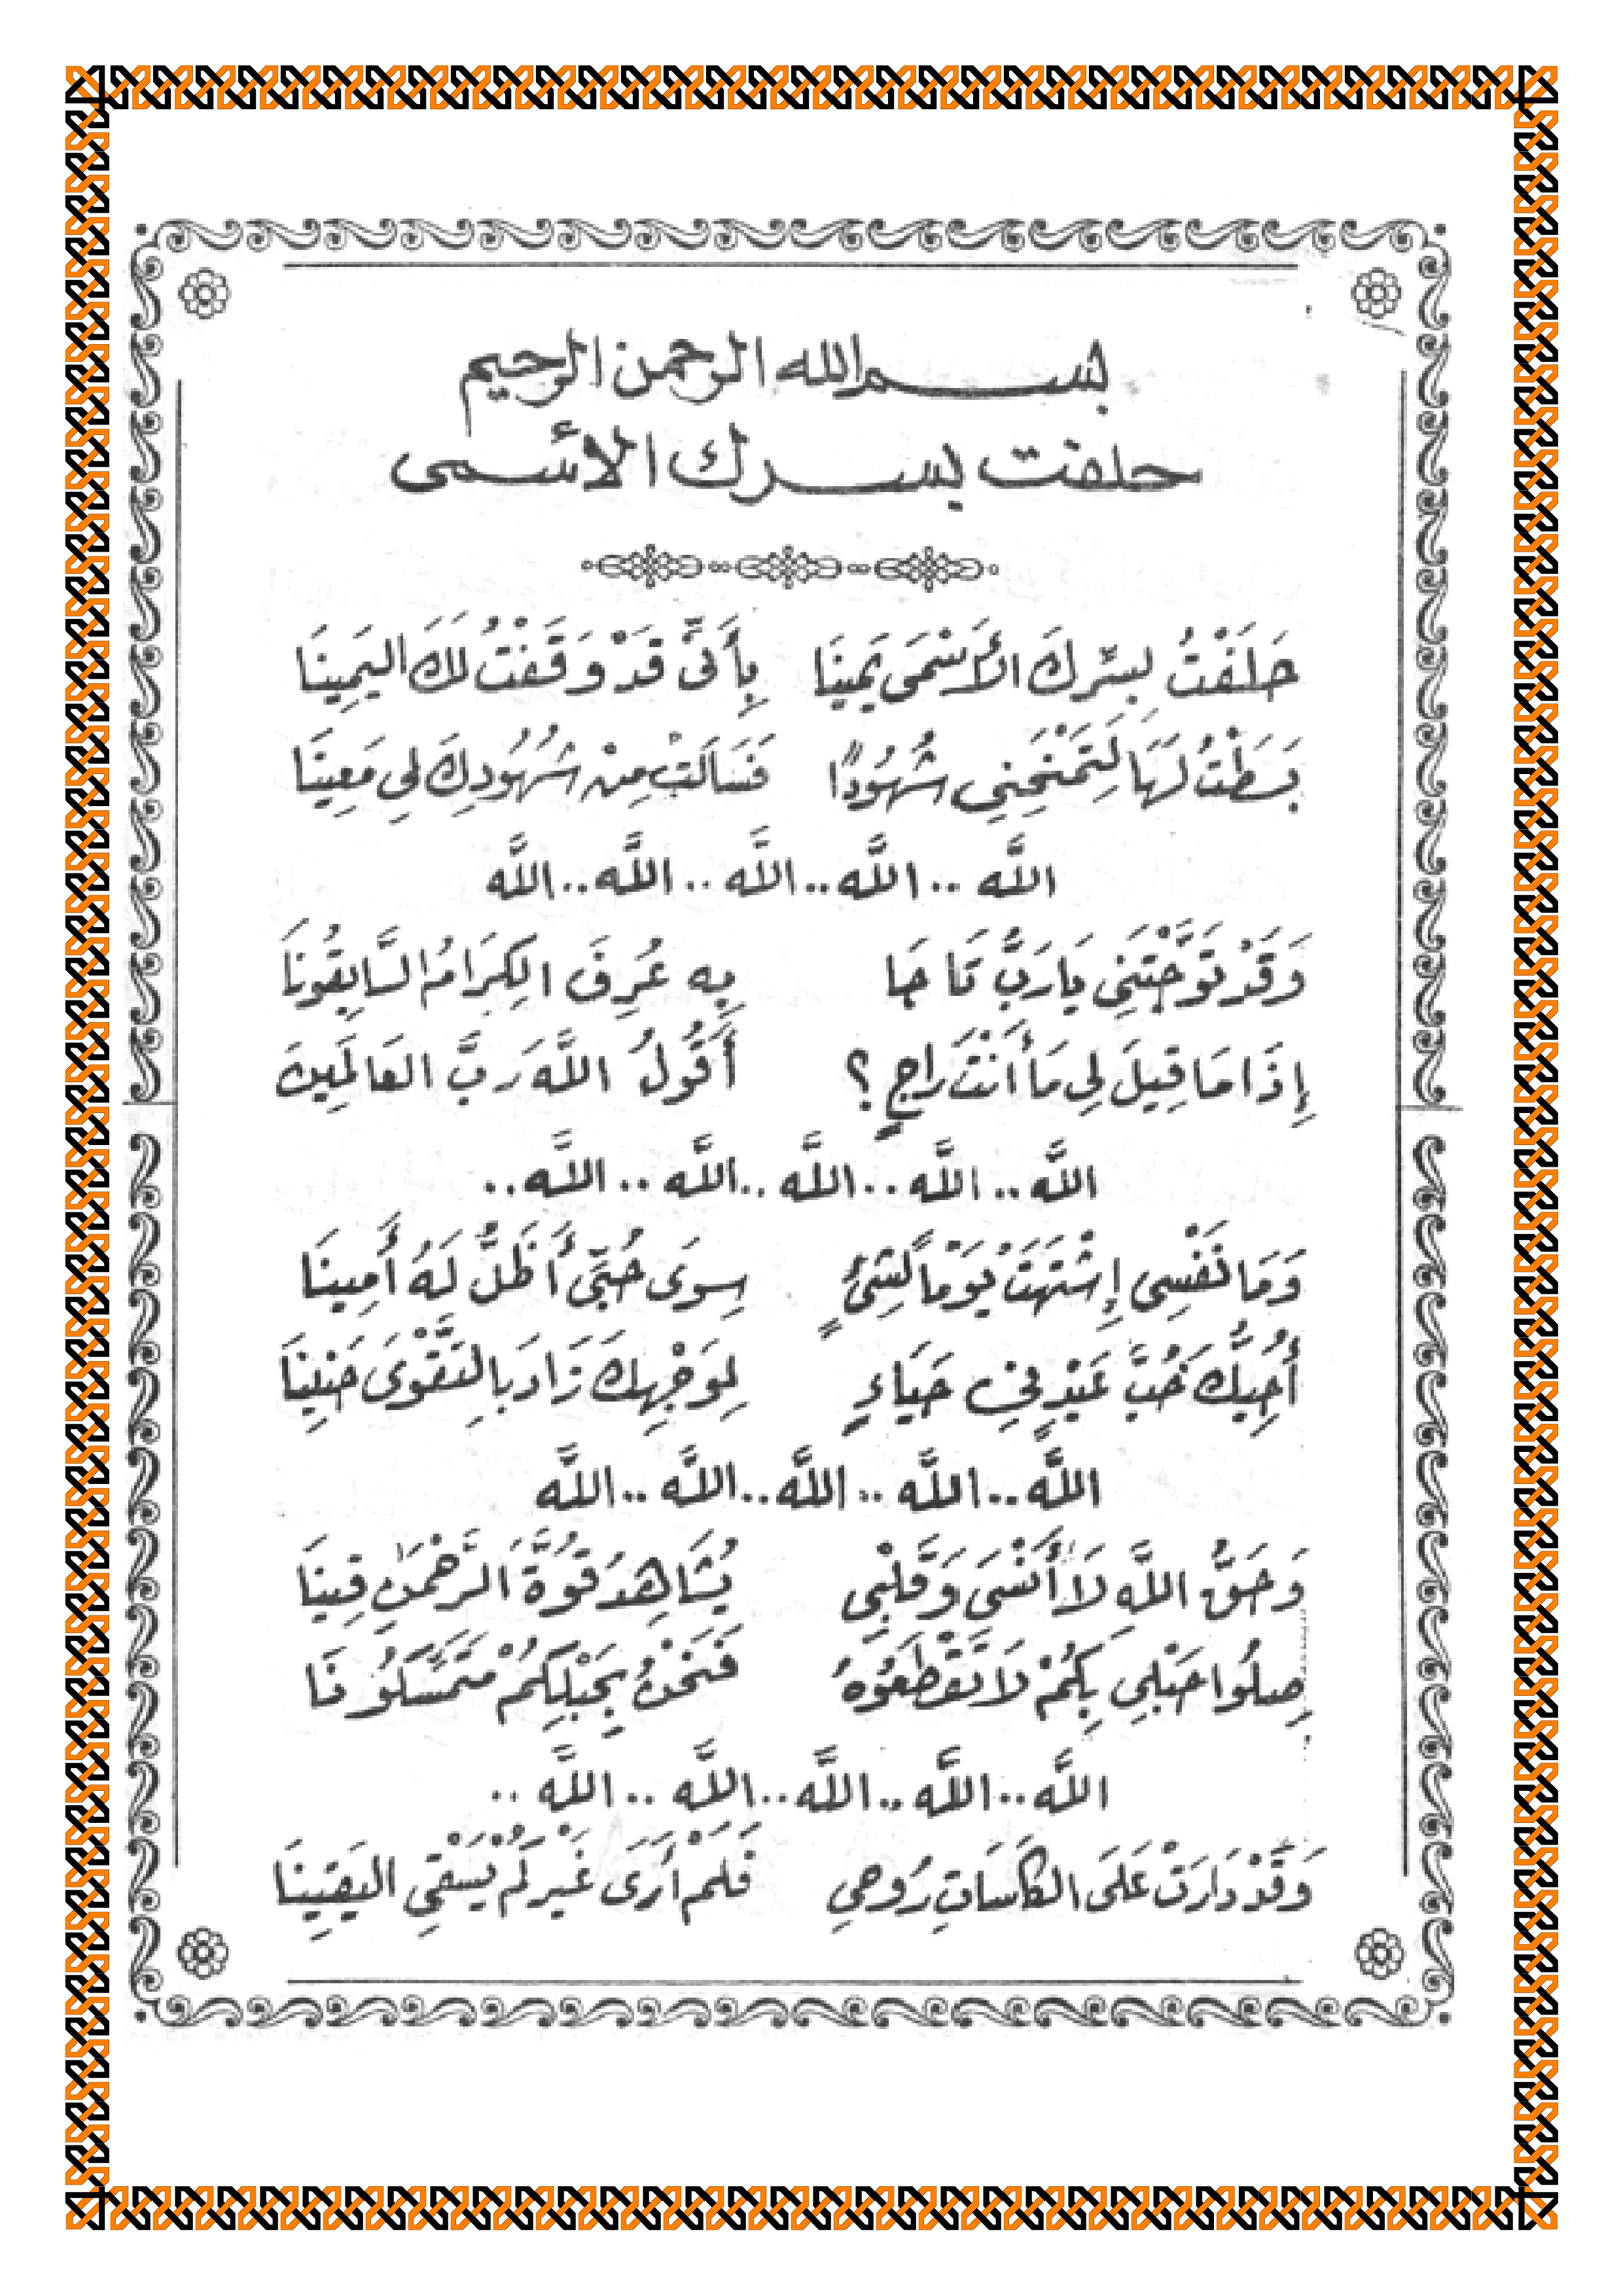 بسم الله الرحمن الرحيم
حلفت بسرك الأسمى
حَلَفْتُ بِسِّرِكَ الأَسْمَى يَمِينَا بِأَنِّى قَدْ وَقَفْتُ لَكَ اليَمِينَا
بَسَطْتُ لَهَا لِتَمْنَحِنِى شُهُودًا فَسَالَتْ مِنْ شُهُودِكَ لِى مَعِينَا
اللَّه .. اللَّه .. اللَّه .. اللَّه .. اللَّه
وَقَدْ تَوَّجْتَنِى يَارَبَّ تَاجَا بِهِ عُرِفَ الكِرَامُ السَّابِقُونَا
إِذَا مَا قِيلَ لِى مَا أَنْتَ رَاجٍ ؟ أَقُولُ اللَّهَ رَبَّ العَالَمِينَ
اللَّه .. اللَّه .. اللَّه .. اللَّه .. اللَّه ..
وَمَا نَفْسِى إِشْتَهَتْ يَوْمًا لِشَىْءٍ سِوَى حُبِّى أَظَلُّ لَهُ أَمِينَا
أُحِبُّكَ حُبَّ عَبْدٍ فِى حَيَاءٍ لِوَجْهِكَ زَادَ بِالتَّقْوَى حَنِينَا
اللَّه .. اللَّه .. اللَّه .. اللَّه .. اللَّه
وَحَقُّ اللَّهِ لَا أَنْسَى وَقَلْبِى يُشَاهِدُ قُوَّةَ الرَّحْمَنِ فِينَا
صِلُوا حَبْلِى بِكُمْ لَا تَقْطَعُوهُ فَنَحْنُ بِحَبْلِكُمْ مُتَمَسِّكُونَا
اللَّه .. اللَّه .. اللَّه .. اللَّه .. اللَّه ..
وَقَدْ دَارَتْ عَلَى الكَاسَاتِ رُوحِى فَلَمْ أَرَى غَيْرَكُمْ يَسْقِى اليَقِينَا